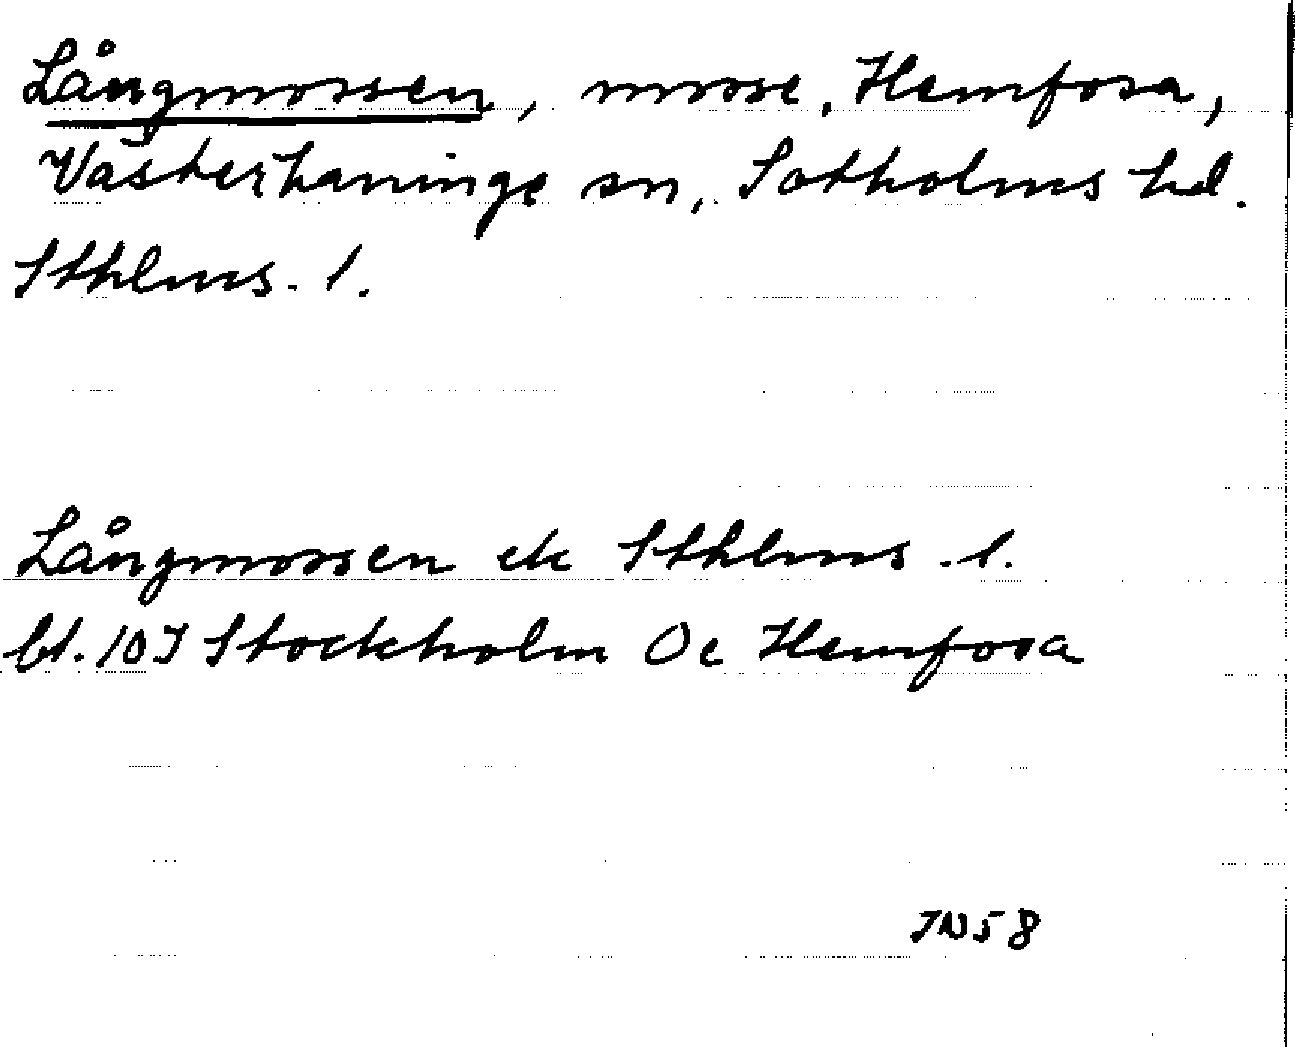 Långmossen, mosse, Hemfosa,
Västerhaninge sn, Sotholms hd.
Sthlms. l.
Långmossen ek Sthlms. l.
bl. 10J Stockholm Oe Hemfosa
JN58